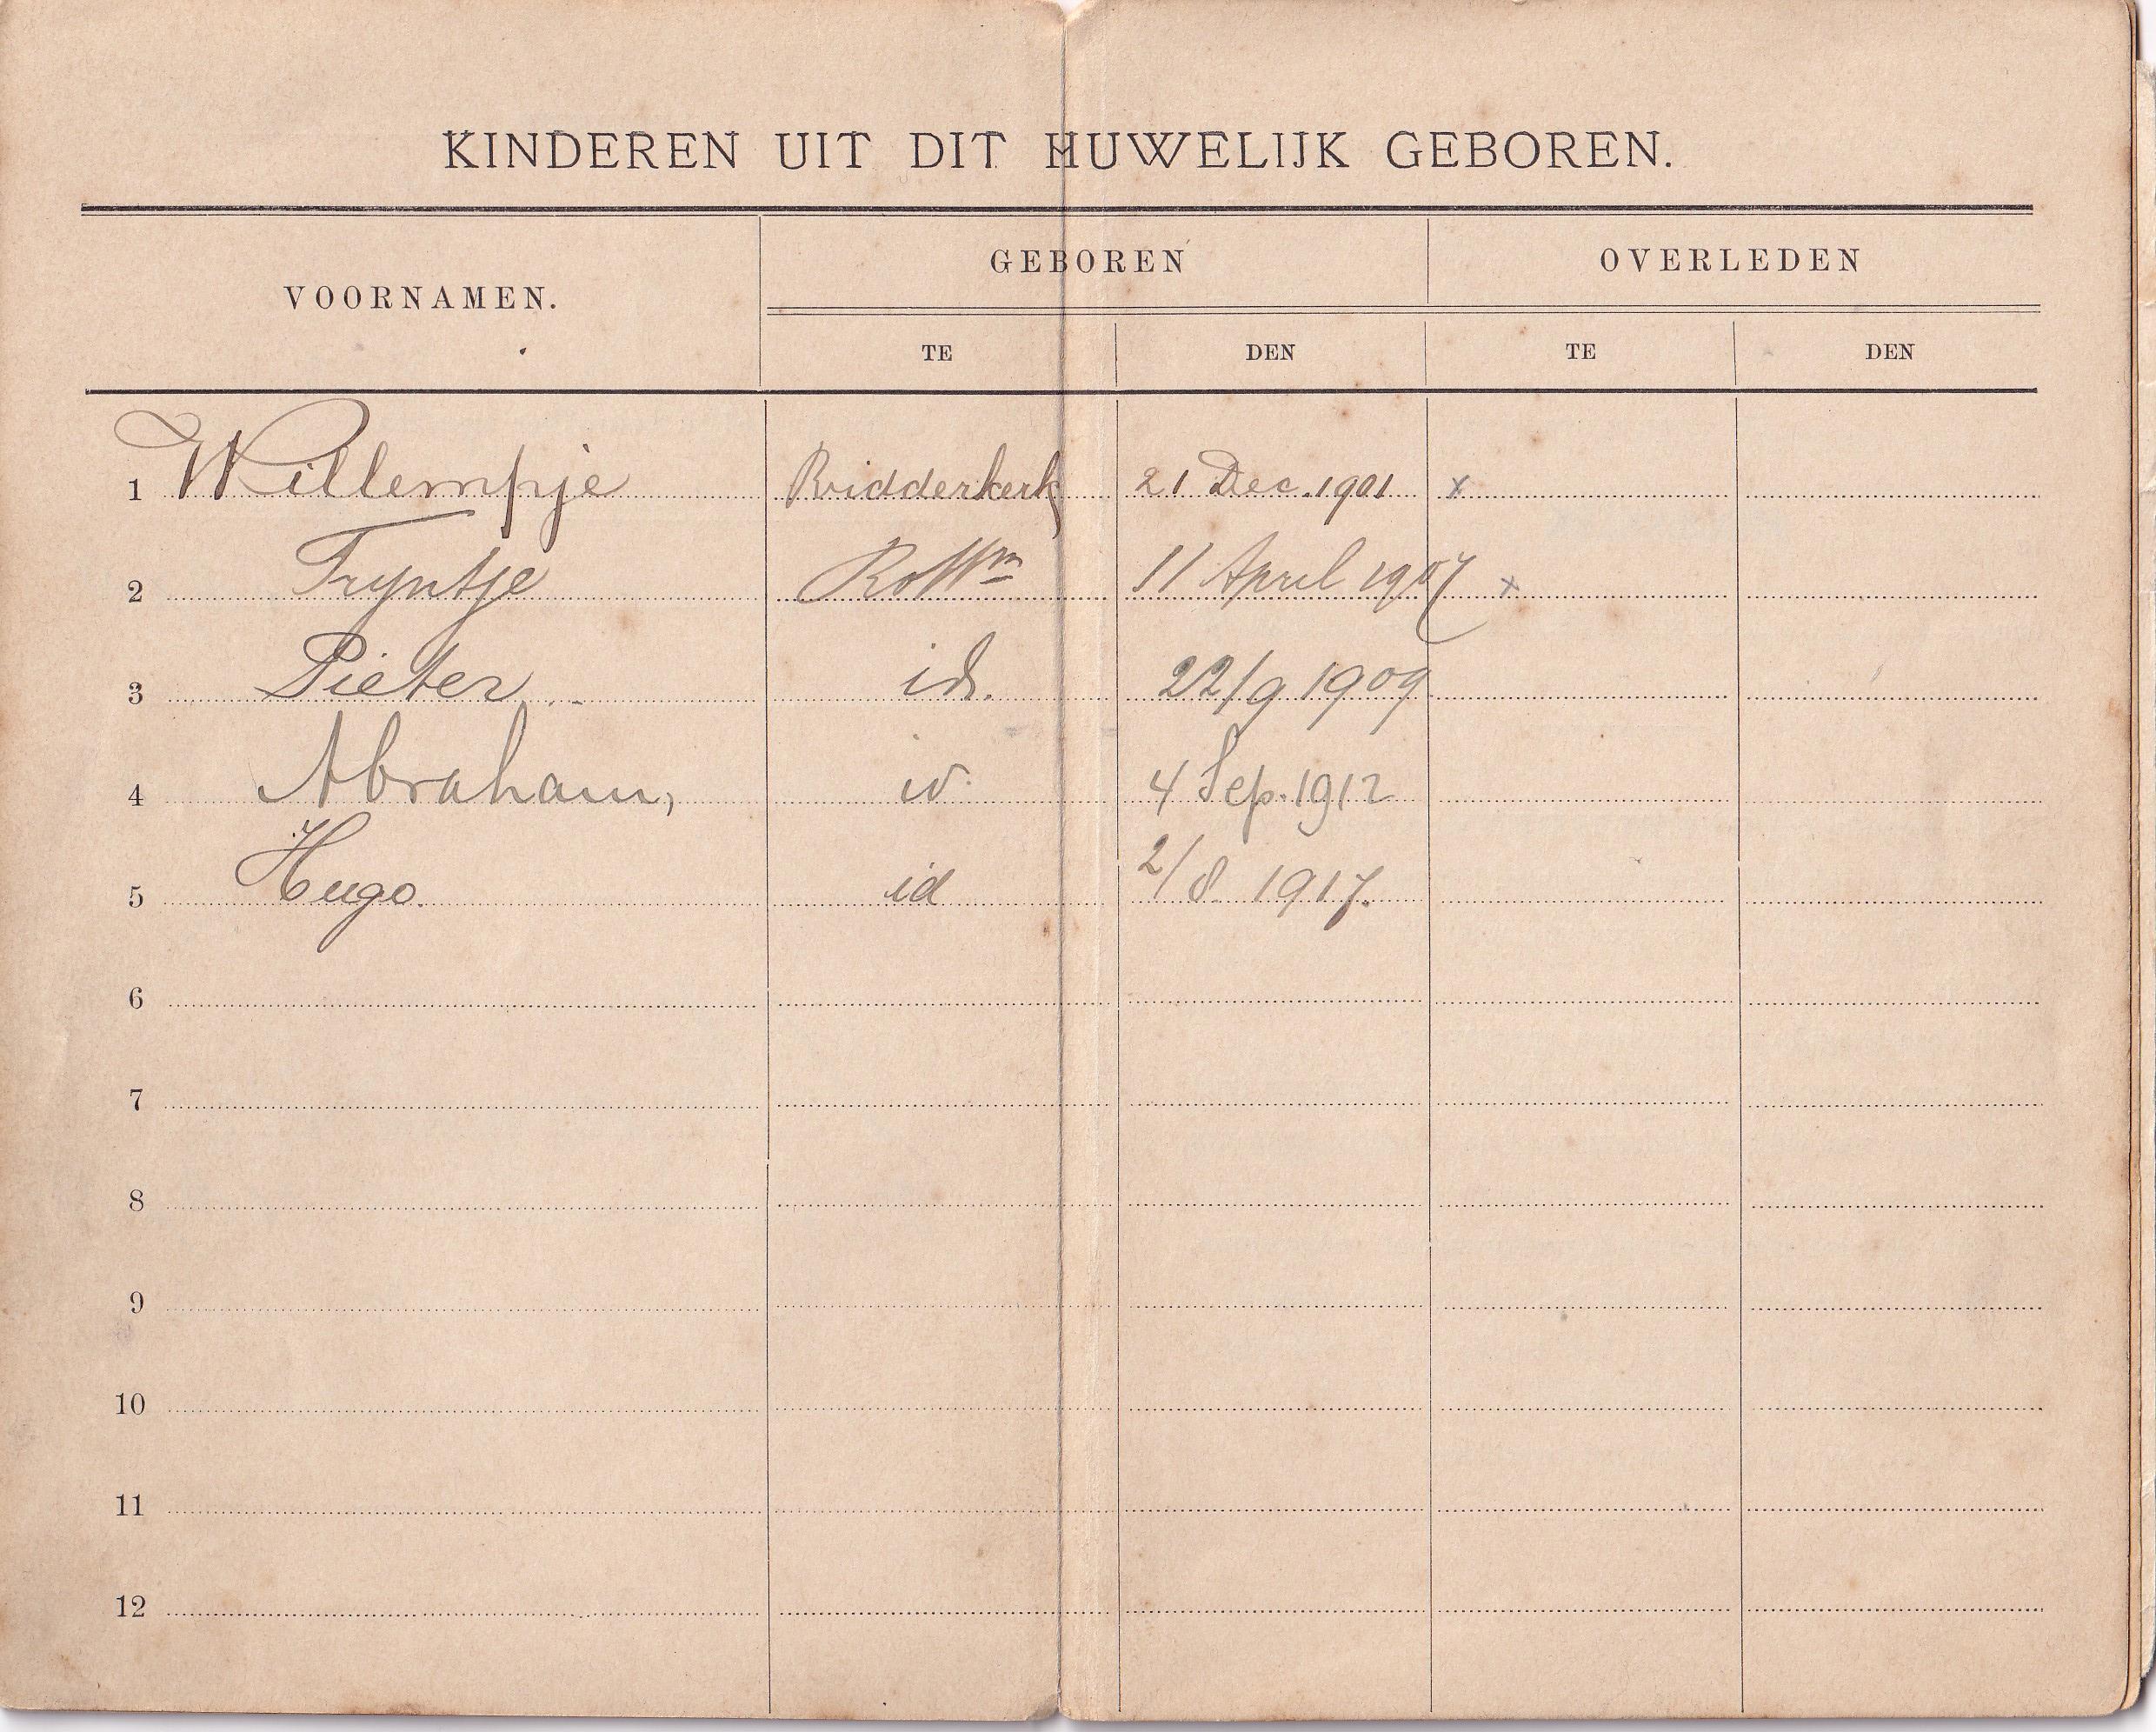 KINDEREN UIT DIT HUWELIJK GEBOREN.
VOORNAMEN. GEBOREN OVERLEDEN
TE DEN TE DEN
1 Willempje Ridderkerk 21 Dec. 1901 x
2 Tryntje Rottm 11 April 1907 x
3 Pieter id. 22/9 1909
4 Abraham, id. 4 Sep. 1912
5 Hugo. id 2/8 1917.
6
7
8
9
10
11
12